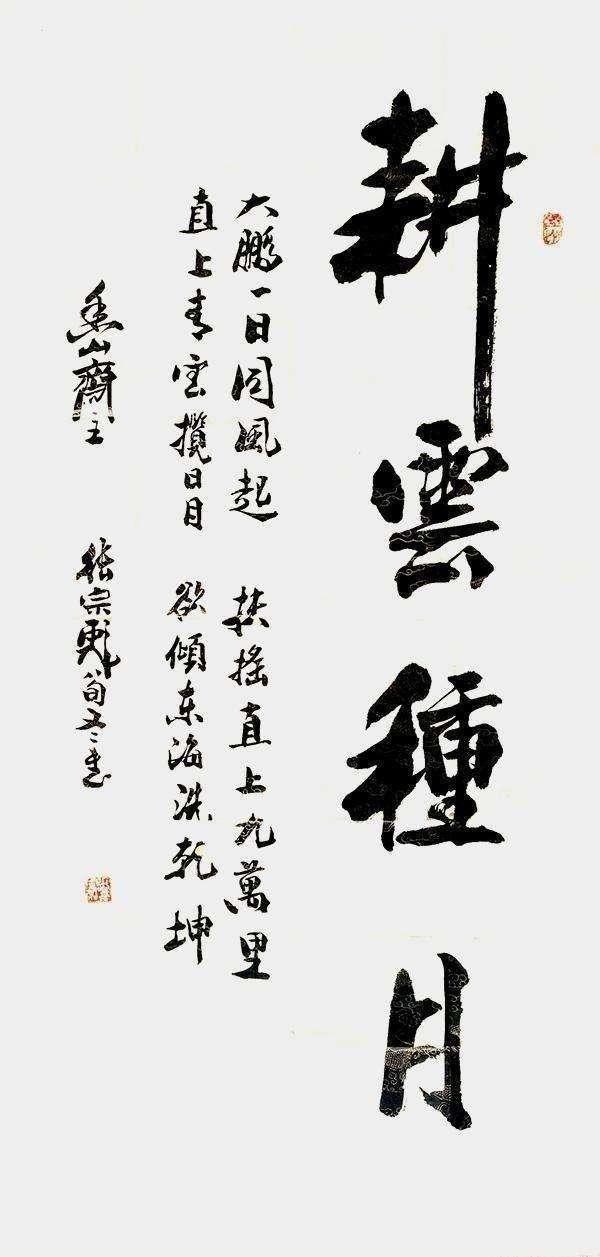 耕雲種月
大鵬一日同風起 扶搖直上九萬里
直上青雲攬日月 欲傾東海洗乾坤
山齋主 張宗彪 八旬又二書